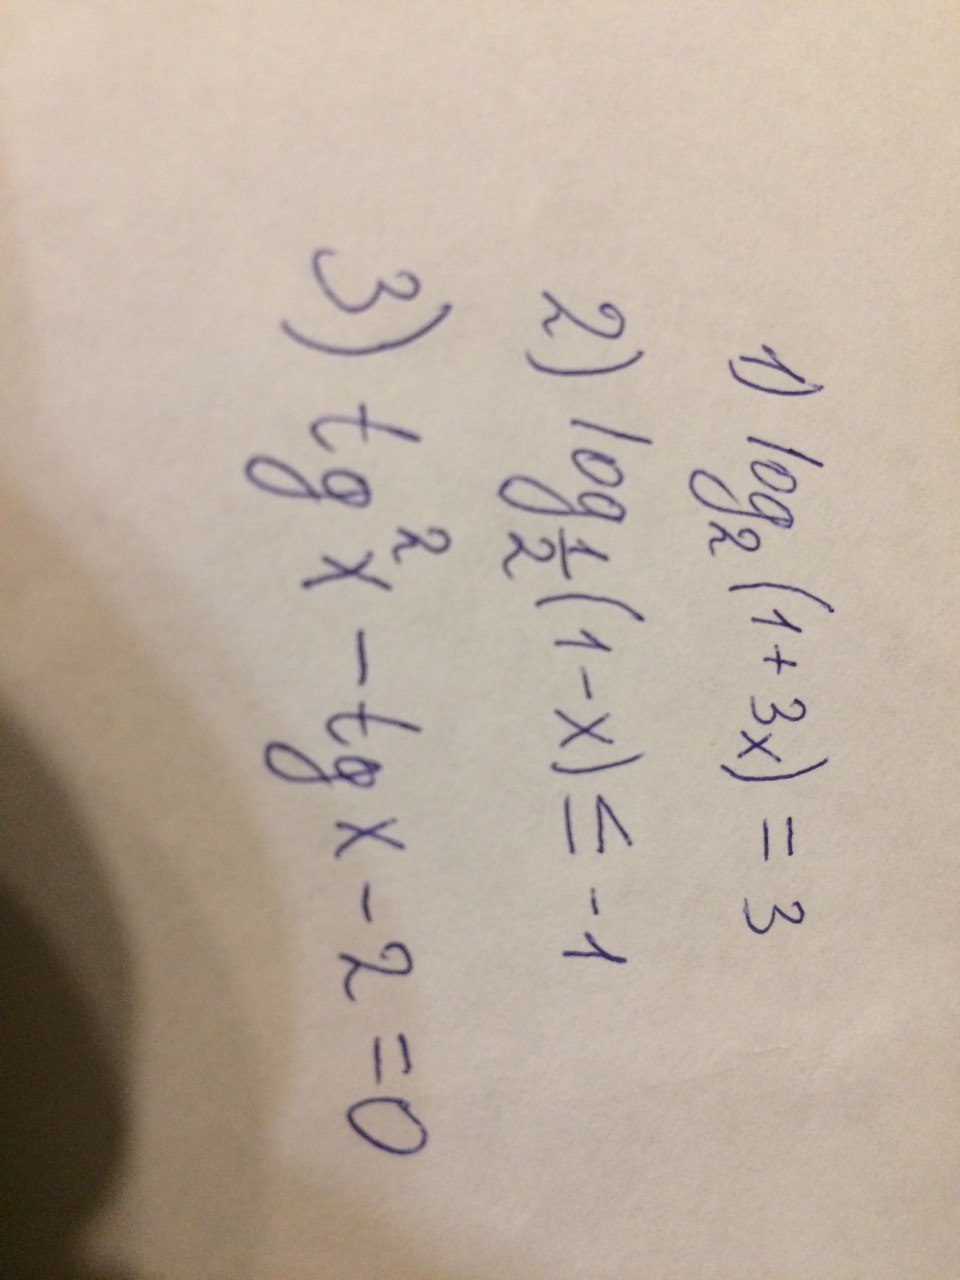 1) log₂(1+3x) = 3
2) log½(1-x) ≤ -1
3) tg²x - tgx - 2 = 0